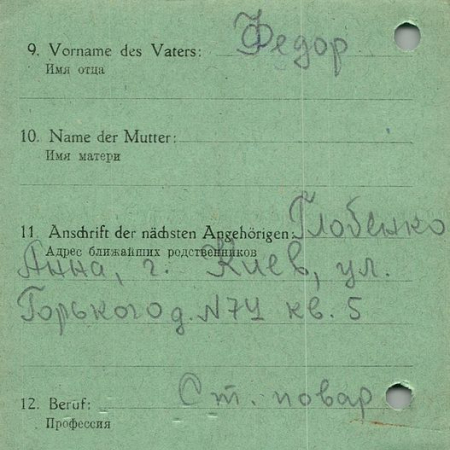 9. Vorname des Vaters: Федор
Имя отца
10. Name der Mutter:
Имя матери
11. Anschrift der nächsten Angehörigen: Глобенко
Адрес ближайших родственников
Анна, г. Киев, ул.
Горького д. №74 кв. 5
12. Beruf: Ст. повар
Профессия